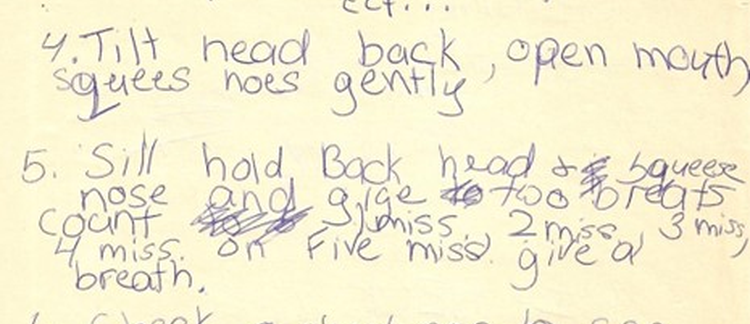 ect...
4. Tilt head back, open mouth
squees noes gently
5. Sill hold Back head & squeese
nose and give too breats
count 1 miss. 2 miss, 3 miss
4 miss. on Five miss. give a
breath.